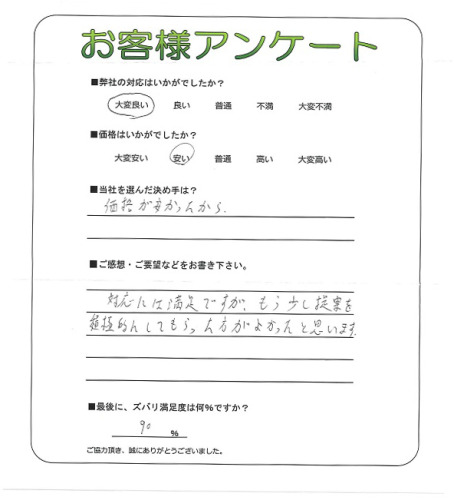 お客様アンケート
■弊社の対応はいかがでしたか？
大変良い 良い 普通 不満 大変不満
■価格はいかがでしたか？
大変安い 安い 普通 高い 大変高い
■当社を選んだ決め手は？
価格が安かったから.
■ご感想・ご要望などをお書き下さい。
対応には満足ですが、もう少し提案を
積極的にしてもらった方がよかったと思います.
■最後に、ズバリ満足度は何%ですか？
90 %
ご協力頂き、誠にありがとうございました。